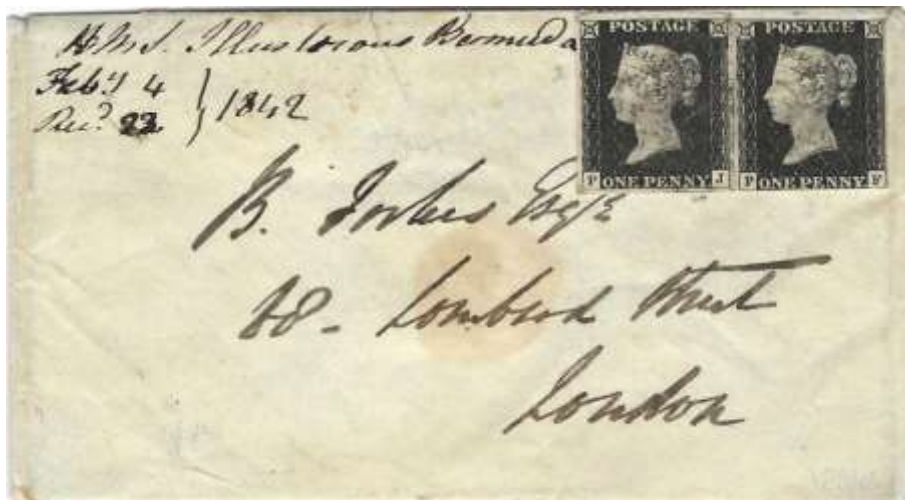 H.M.S. Illustrious Bermuda
Feby 4
Recd. 22
} 1842
POSTAGE
P ONE PENNY J
POSTAGE
P ONE PENNY F
B. Forbes Esqre
68 - Lombard Street
London